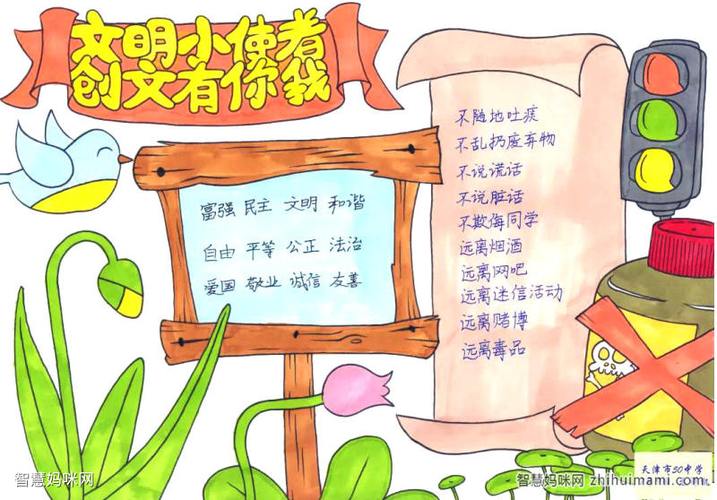 文明小使者
创文有你我
富强 民主 文明 和谐
自由 平等 公正 法治
爱国 敬业 诚信 友善
不随地吐痰
不乱扔废弃物
不说谎话
不说脏话
不欺侮同学
远离烟酒
远离网吧
远离迷信活动
远离赌博
远离毒品
天津市50中学
智慧妈咪网
智慧妈咪网 zhihuimami.com